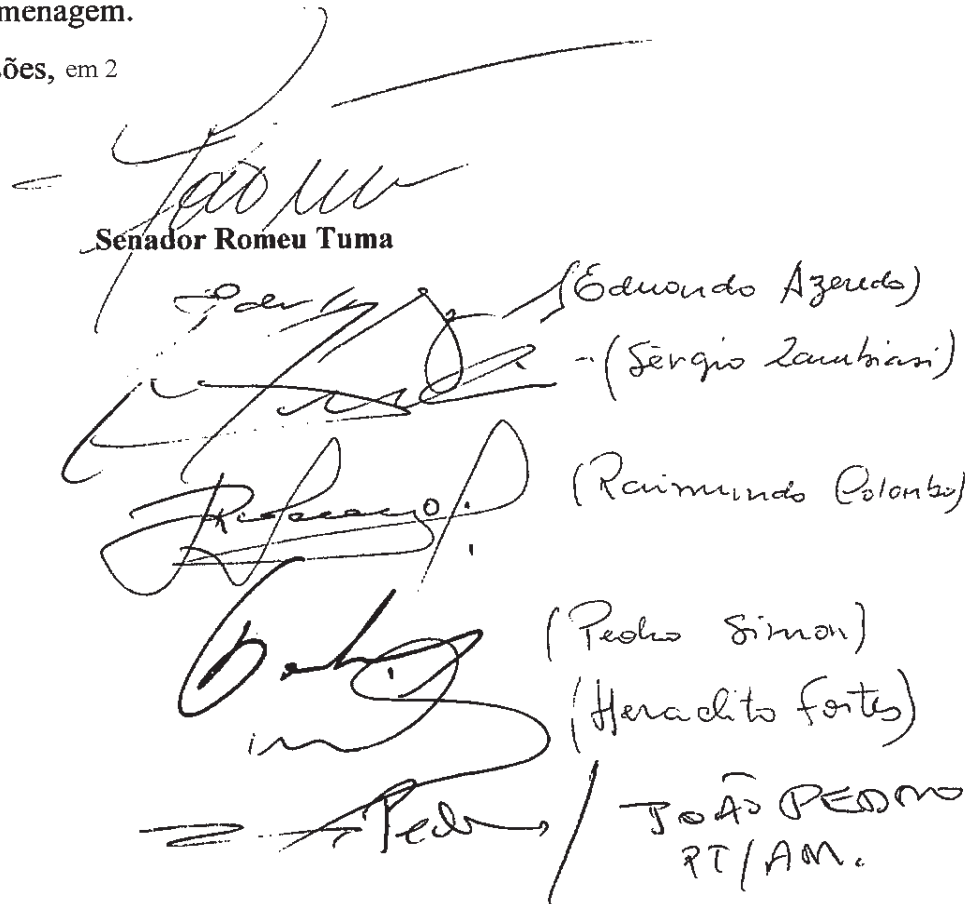 menagem.
ões, em 2
Senador Romeu Tuma
(Eduardo Azeredo)
(Sérgio Zambiasi)
(Raimundo Colombo)
(Pedro Simon)
(Heraclito Fortes)
Pedro / JOÃO PEDRO
PT/AM.